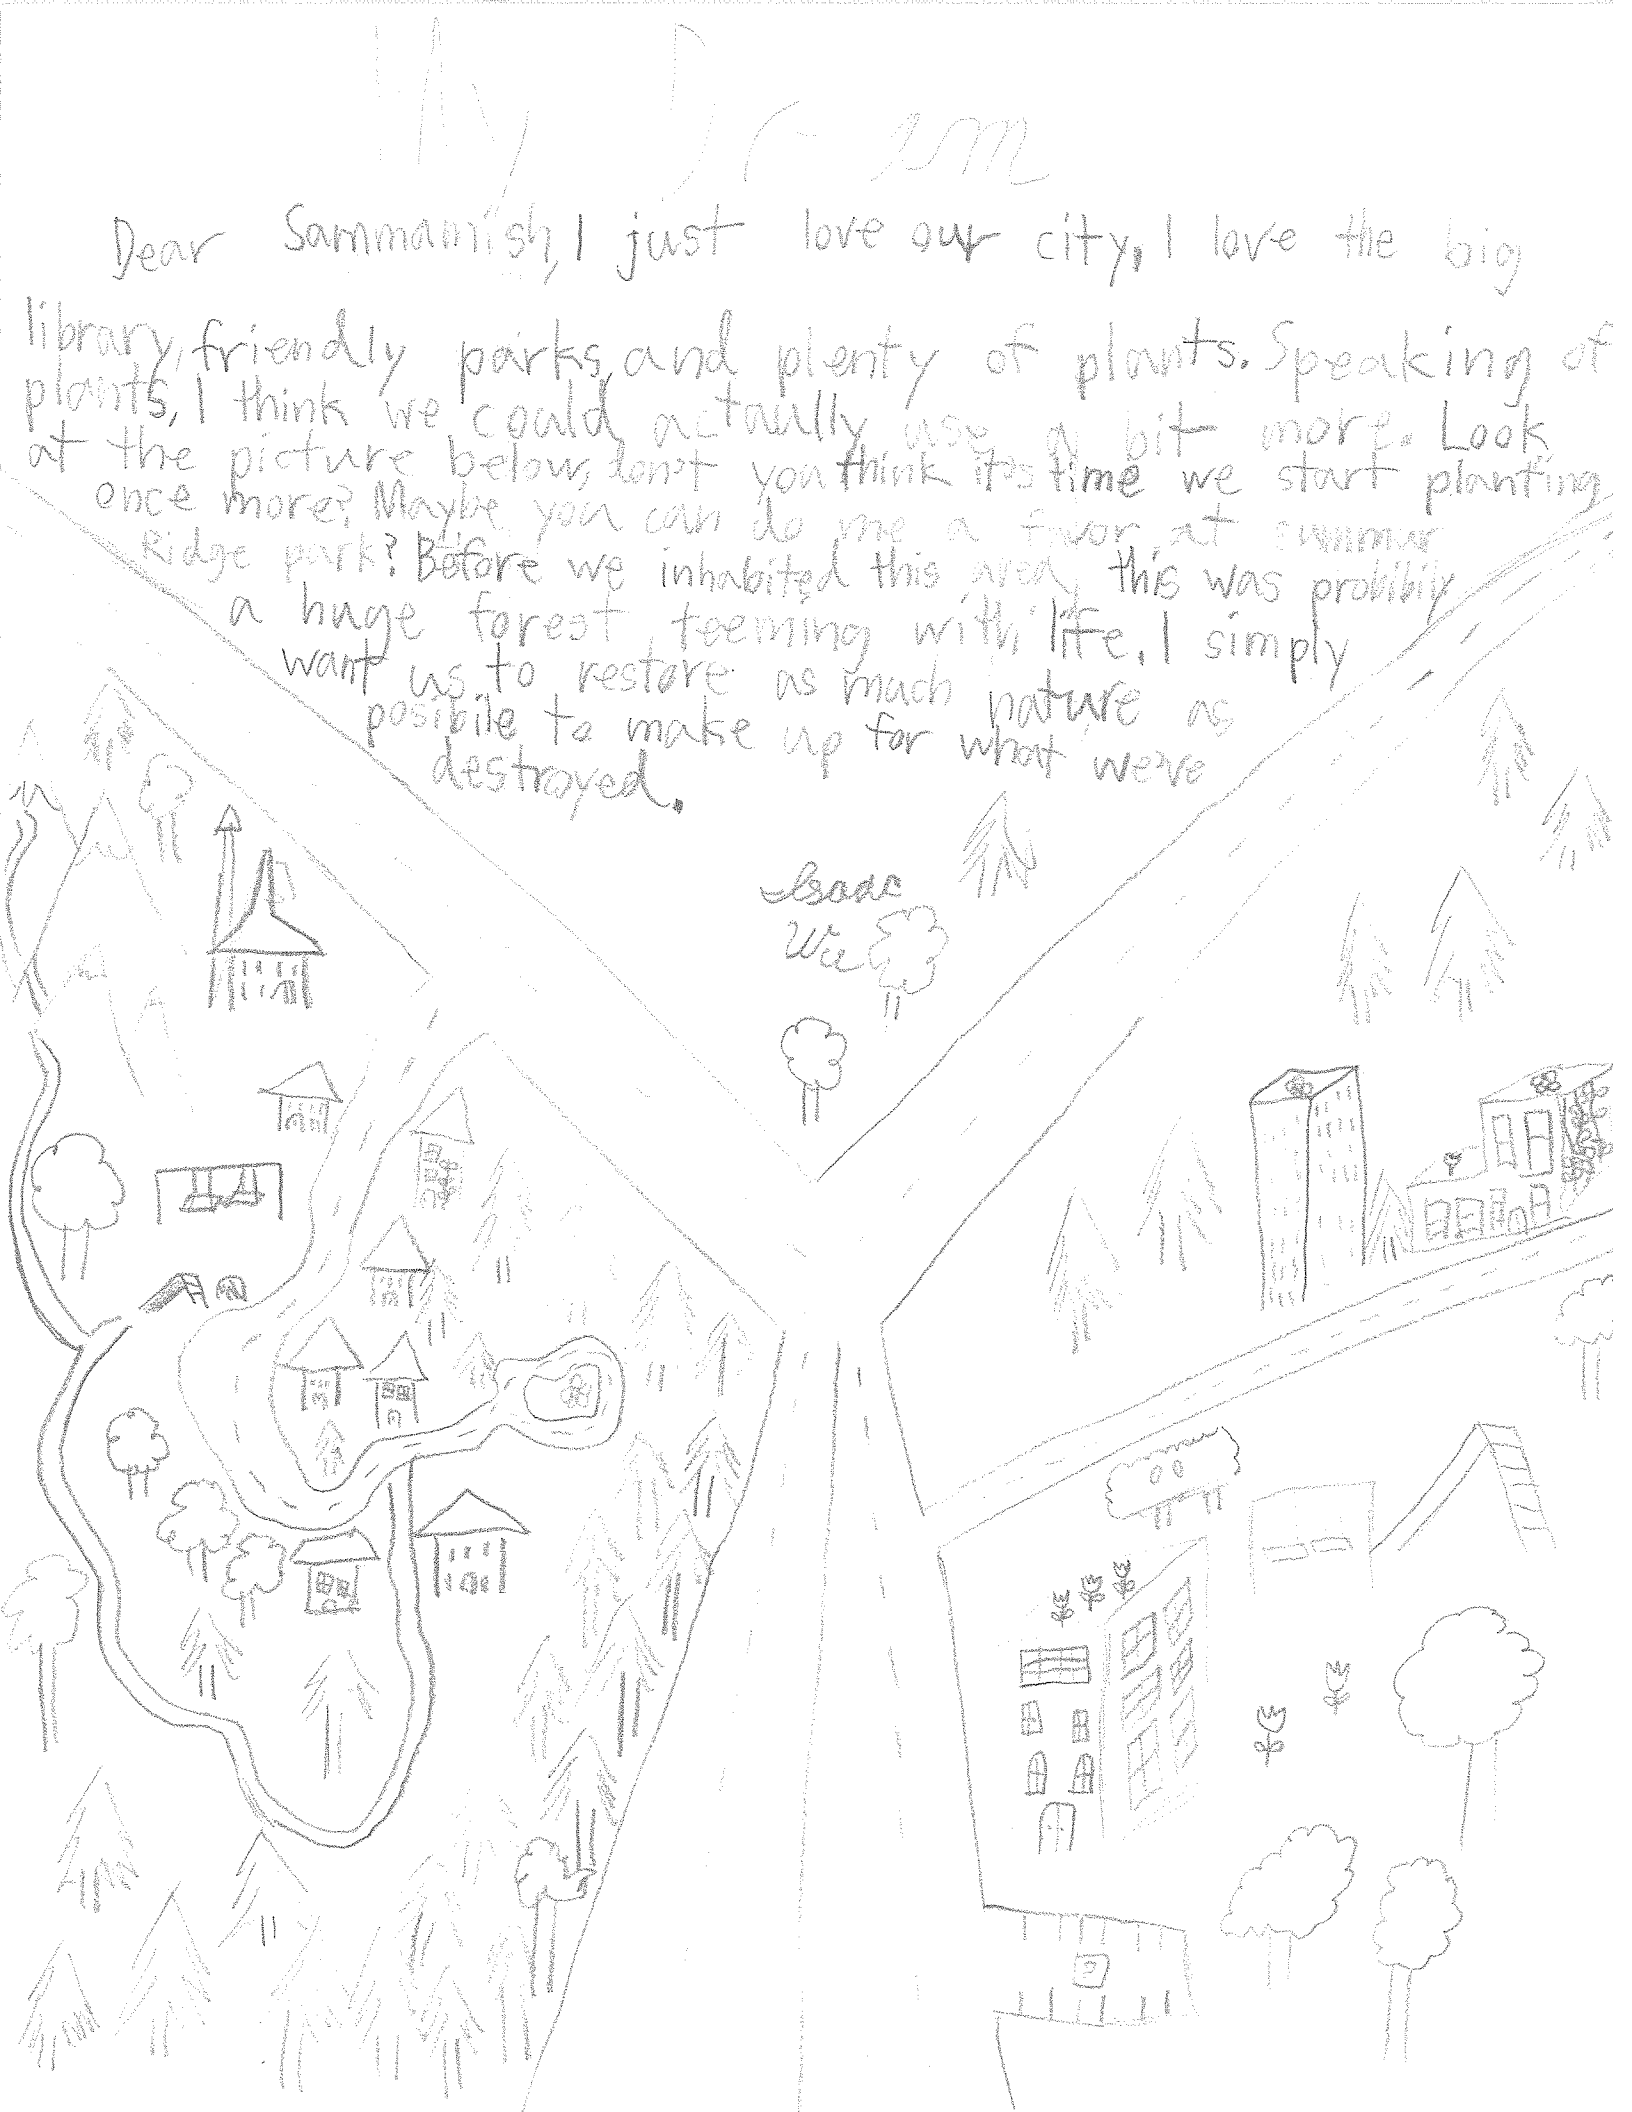 My Dream
Dear Sammamish, I just love our city, I love the big
library, friendly parks, and plenty of plants. Speaking of
plants, I think we could actaully use a bit more. Look
at the picture below, don't you think it's time we start planting
once more? Maybe you can do me a favor at summur
Ridge park? Before we inhabited this area, this was probibily
a huge forest, teeming with life. I simply
want us to restore as much nature as
posibile to make up for what we've
destroyed.
Isaac